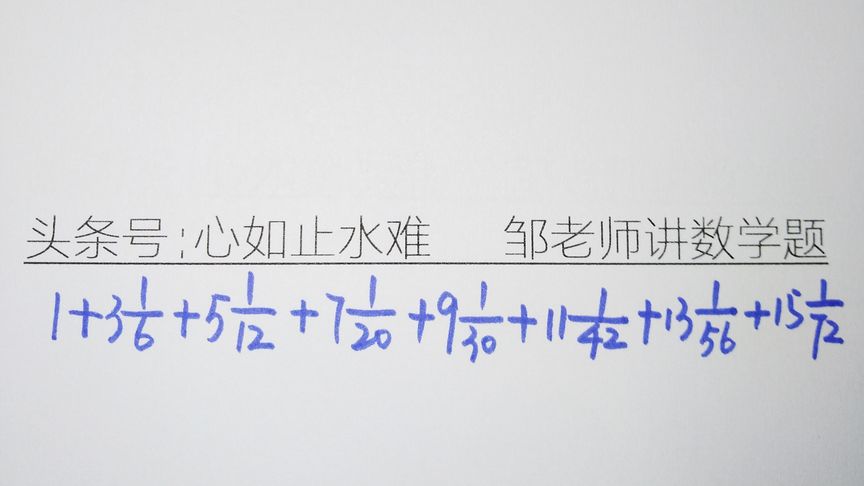 头条号:心如止水难 邹老师讲数学题
1+3 1/6+5 1/12+7 1/20+9 1/30+11 1/42+13 1/56+15 1/72